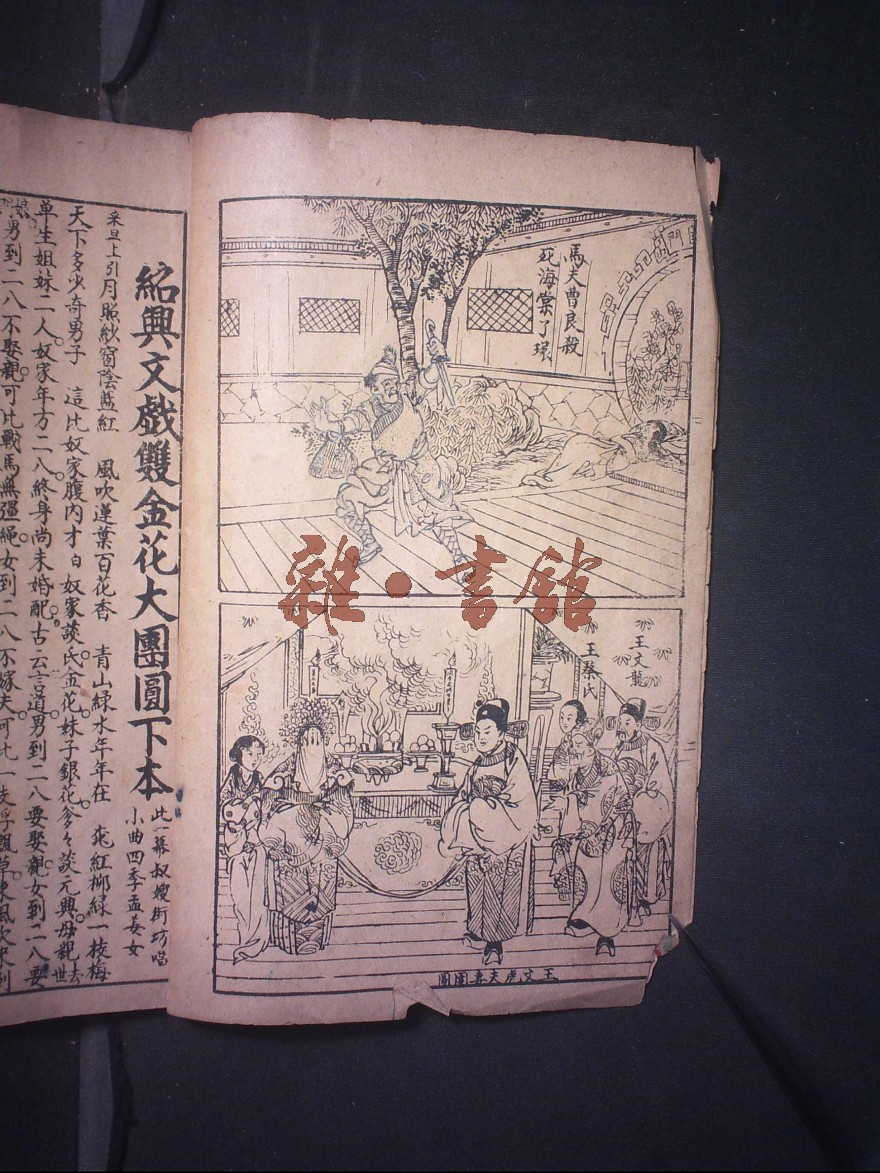 馬夫曹良殺
死海棠了環
王文龍
王蔡氏
王文虎夫妻團圓
雜·書館
紹興文戲雙金花大團圓下本
此一幕叔嫂街坊唱
小曲四季孟姜女
采旦上引月照紗窗陰藍紅 風吹蓮葉百花香 青山綠水年年在 桃紅柳綠一枝梅
天下多少奇男子 這比奴家腹內才 白奴家談氏金花妹子銀花爹々談元興母親去世
單生姐妹二人奴家年方二八終身尚未婚配古云言道男到二八要娶親女到二八要
男到二八不娶親可比戰馬無彊繩女到二八不嫁夫可比一枝浮飄草東風吹來到